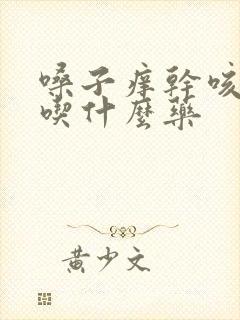 嗓子痒幹咳
喫什麼藥
黄少文